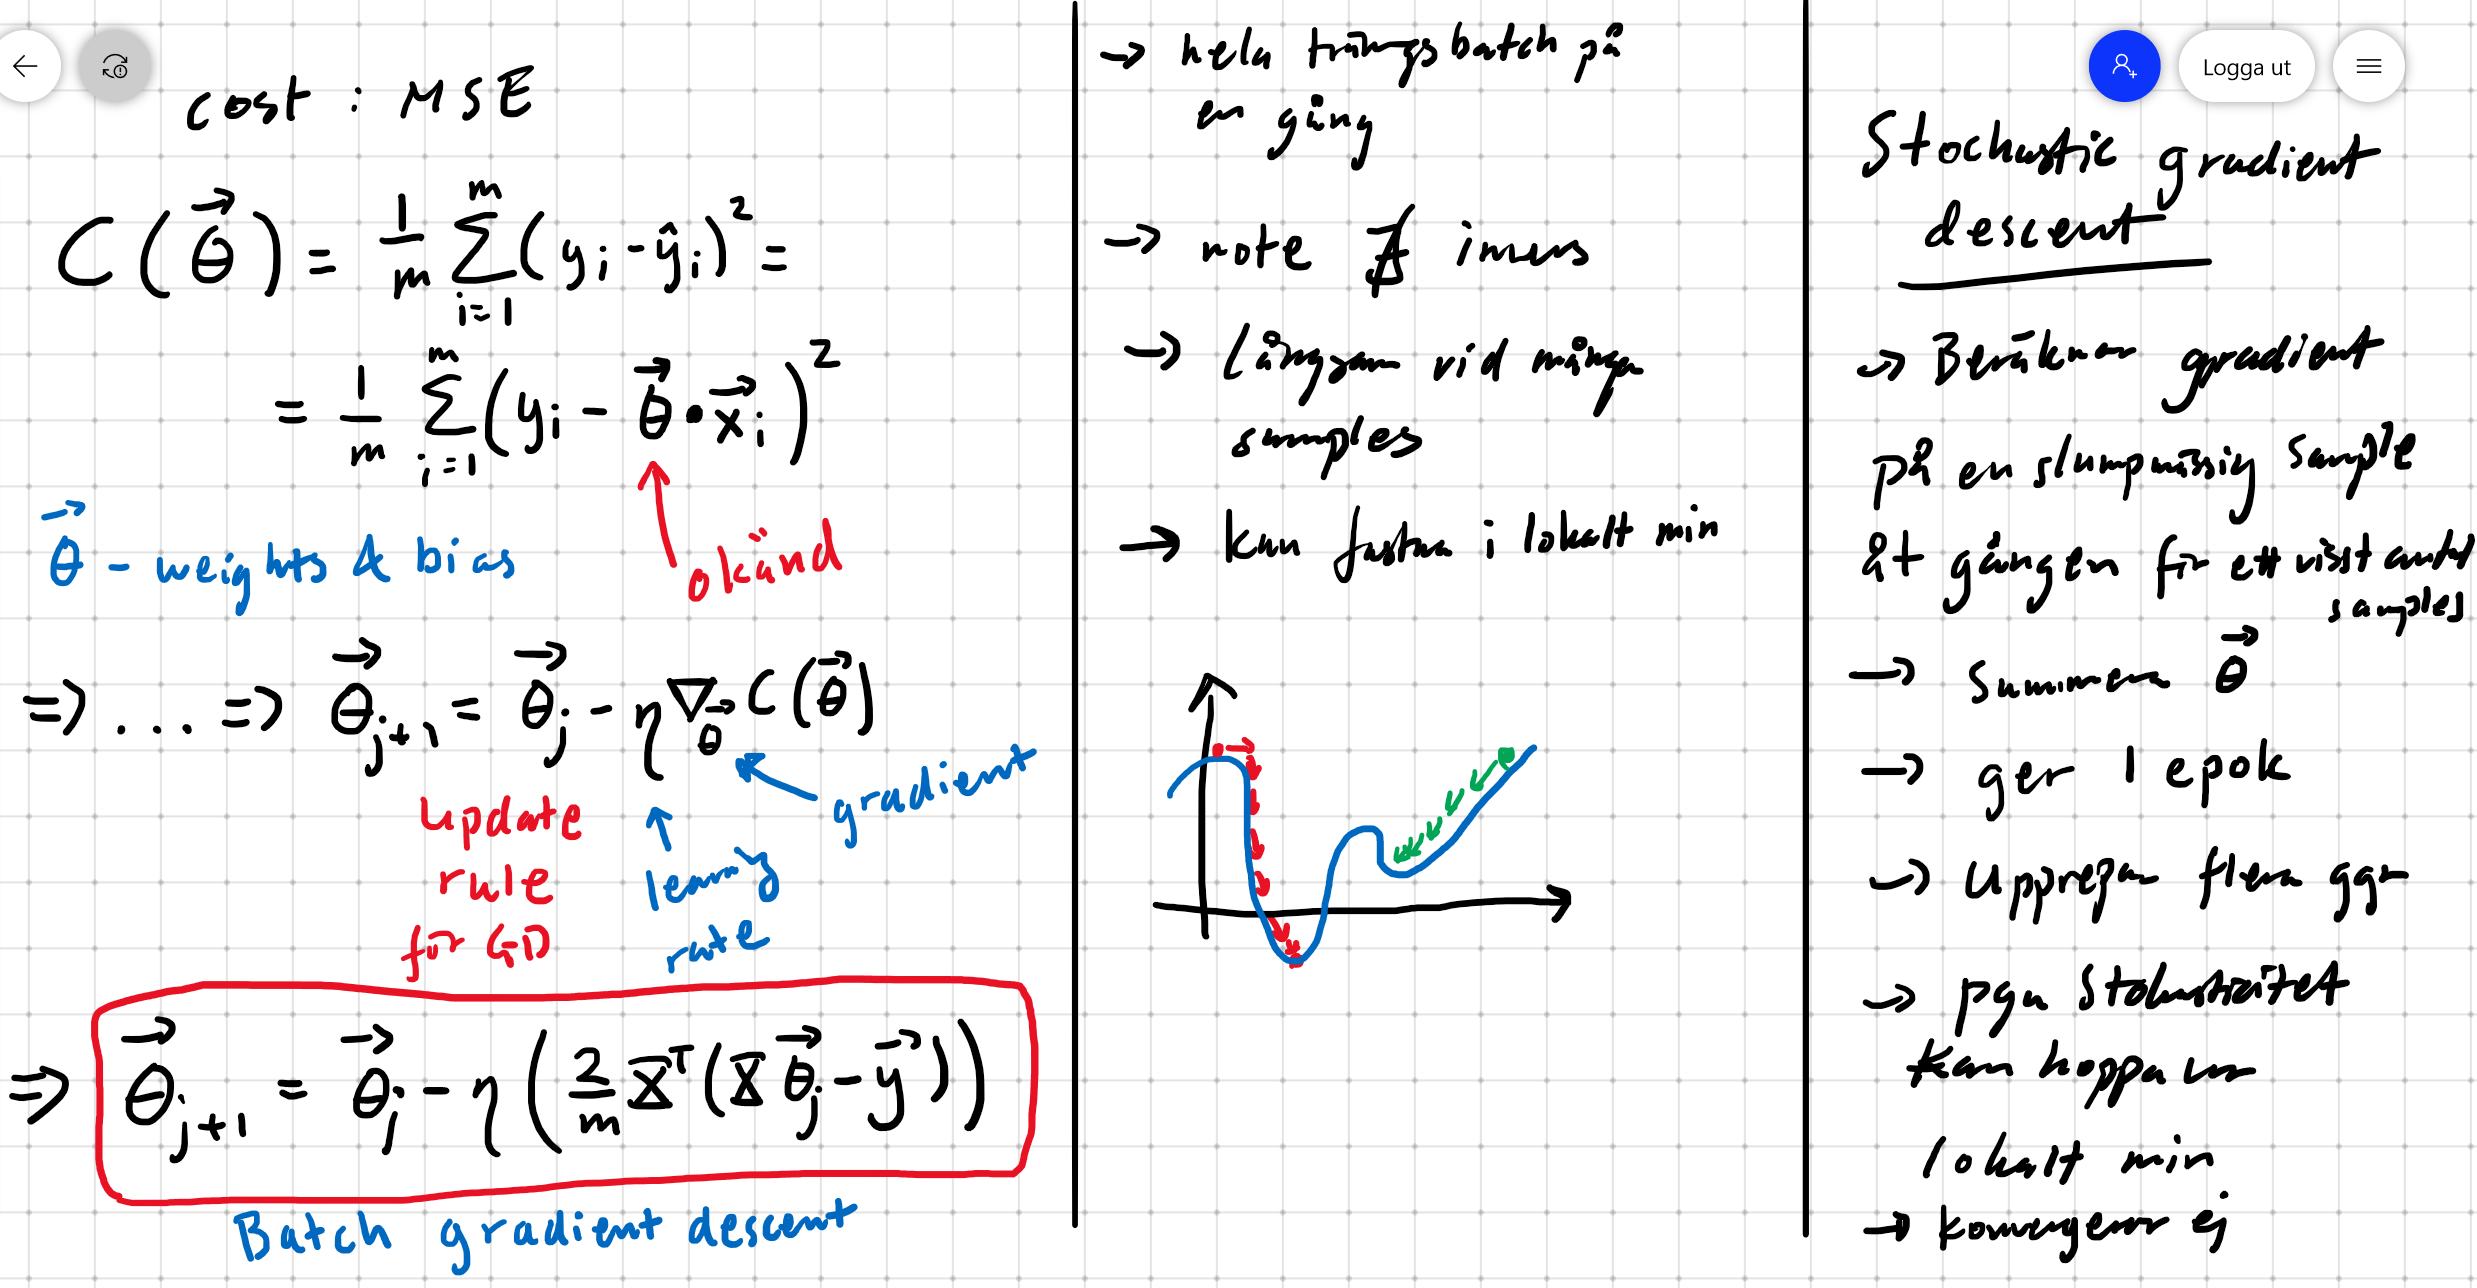 cost : MSE
C(θ⃗) = 1/m Σ_{i=1}^{m} (y_i - ŷ_i)² =
= 1/m Σ_{i=1}^{m} (y_i - θ⃗ • x⃗_i)²
θ⃗ - weights & bias
okänd
⇒ ... ⇒ θ⃗_{j+1} = θ⃗_j - η ∇_θ⃗ C(θ⃗)
gradient
learning
rate
update
rule
för GD
⇒ θ⃗_{j+1} = θ⃗_j - η (2/m X^T (X θ⃗_j - y⃗))
Batch gradient descent
→ hela tränings batch på
en gång
→ note ∄ invers
→ Långsam vid många
samples
→ kan fastna i lokalt min
Logga ut
Stochastic gradient
descent
→ Beräknar gradient
på en slumpmässig sample
åt gången för ett visst antal
samples
→ summera θ⃗
→ ger 1 epok
→ upprepar flera ggr
→ pga stokasticitet
kan hoppa ur
lokalt min
→ konvergerar ej